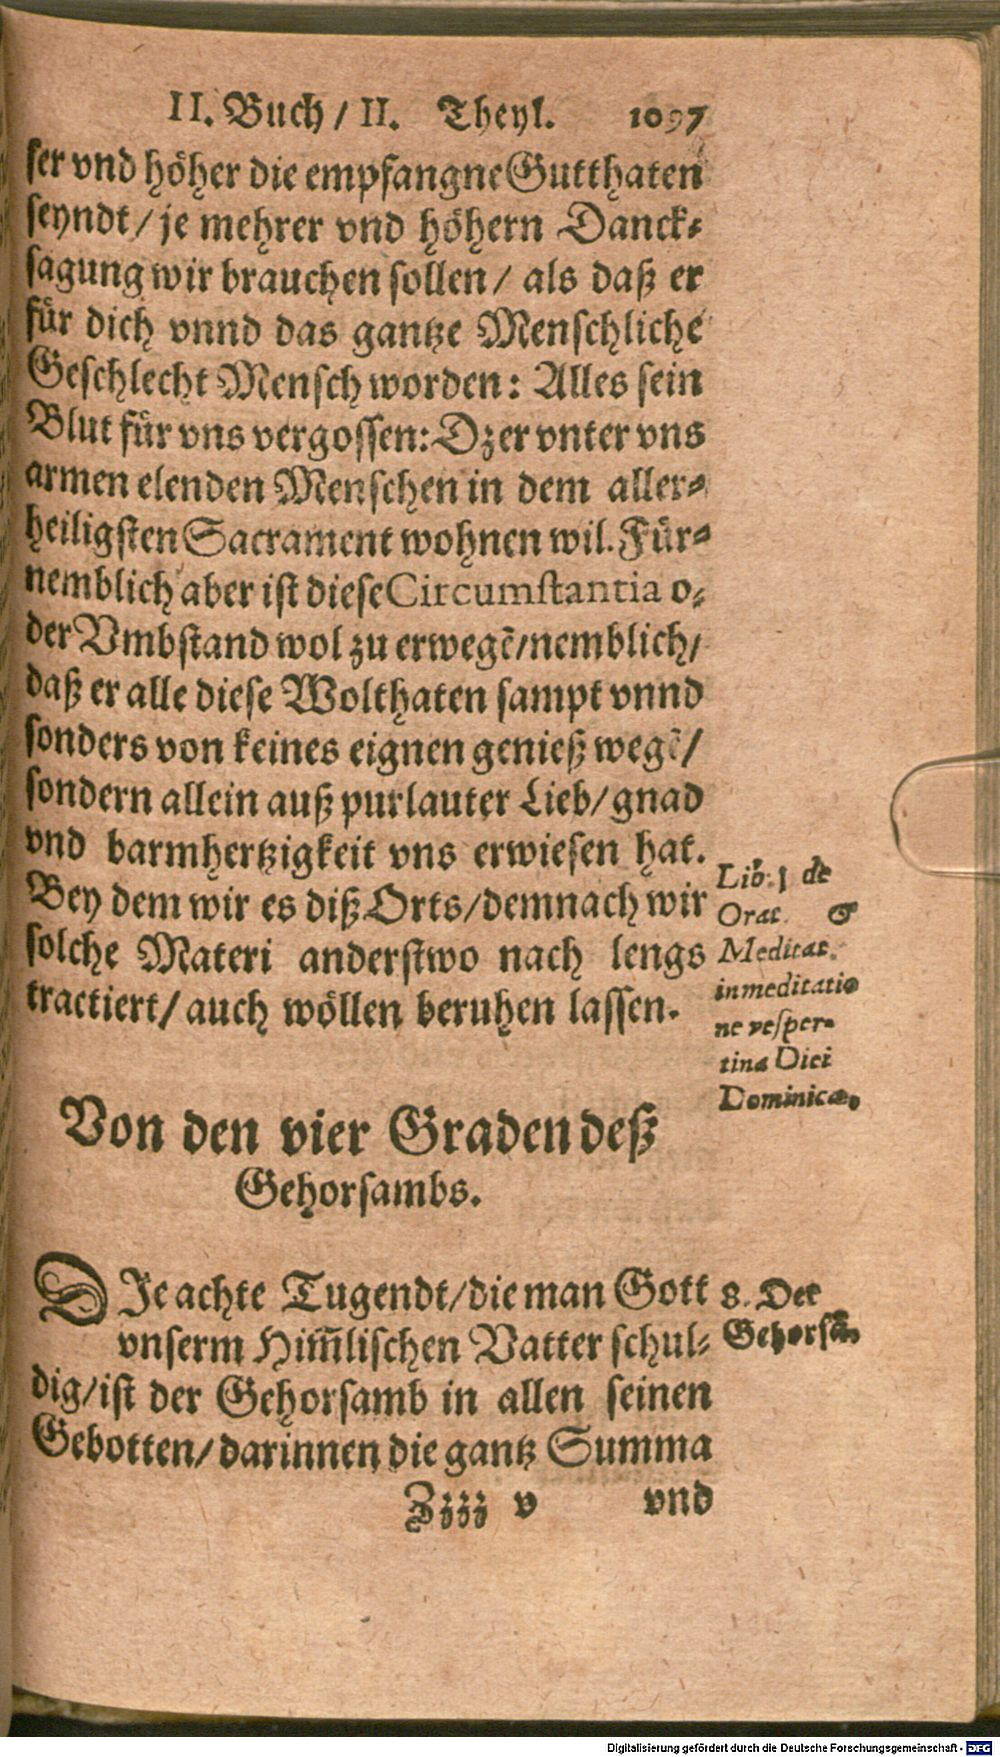 II. Buch / II. Theyl. 1097
ser vnd höher die empfangne Gutthaten
seyndt / je mehrer vnd höhern Danck-
sagung wir brauchen sollen / als daß er
für dich vnnd das gantze Menschliche
Geschlecht Mensch worden: Alles sein
Blut für vns vergossen: Dz er vnter vns
armen elenden Menschen in dem aller-
heiligsten Sacrament wohnen wil. Für-
nemblich aber ist diese Circumstantia o-
der Vmbstand wol zu erwegẽ / nemblich /
daß er alle diese Wolthaten sampt vnnd
sonders von keines eignen genieß wegẽ /
sondern allein auß purlauter Lieb / gnad
vnd barmhertzigkeit vns erwiesen hat.
Bey dem wir es diß Orts / demnach wir
solche Materi anderstwo nach lengs
tractiert / auch wöllen beruhen lassen.
Lib. 1 de
Orat. &
Meditat.
in meditatio
ne vesper-
tina Diei
Dominicæ.
Von den vier Graden deß
Gehorsambs.
DIe achte Tugendt / die man Gott
vnserm Him̃lischen Vatter schul-
dig / ist der Gehorsamb in allen seinen
Gebotten / darinnen die gantz Summa
8. Der
Gehorsã.
Zzzz v vnd
Digitalisierung gefördert durch die Deutsche Forschungsgemeinschaft - DFG